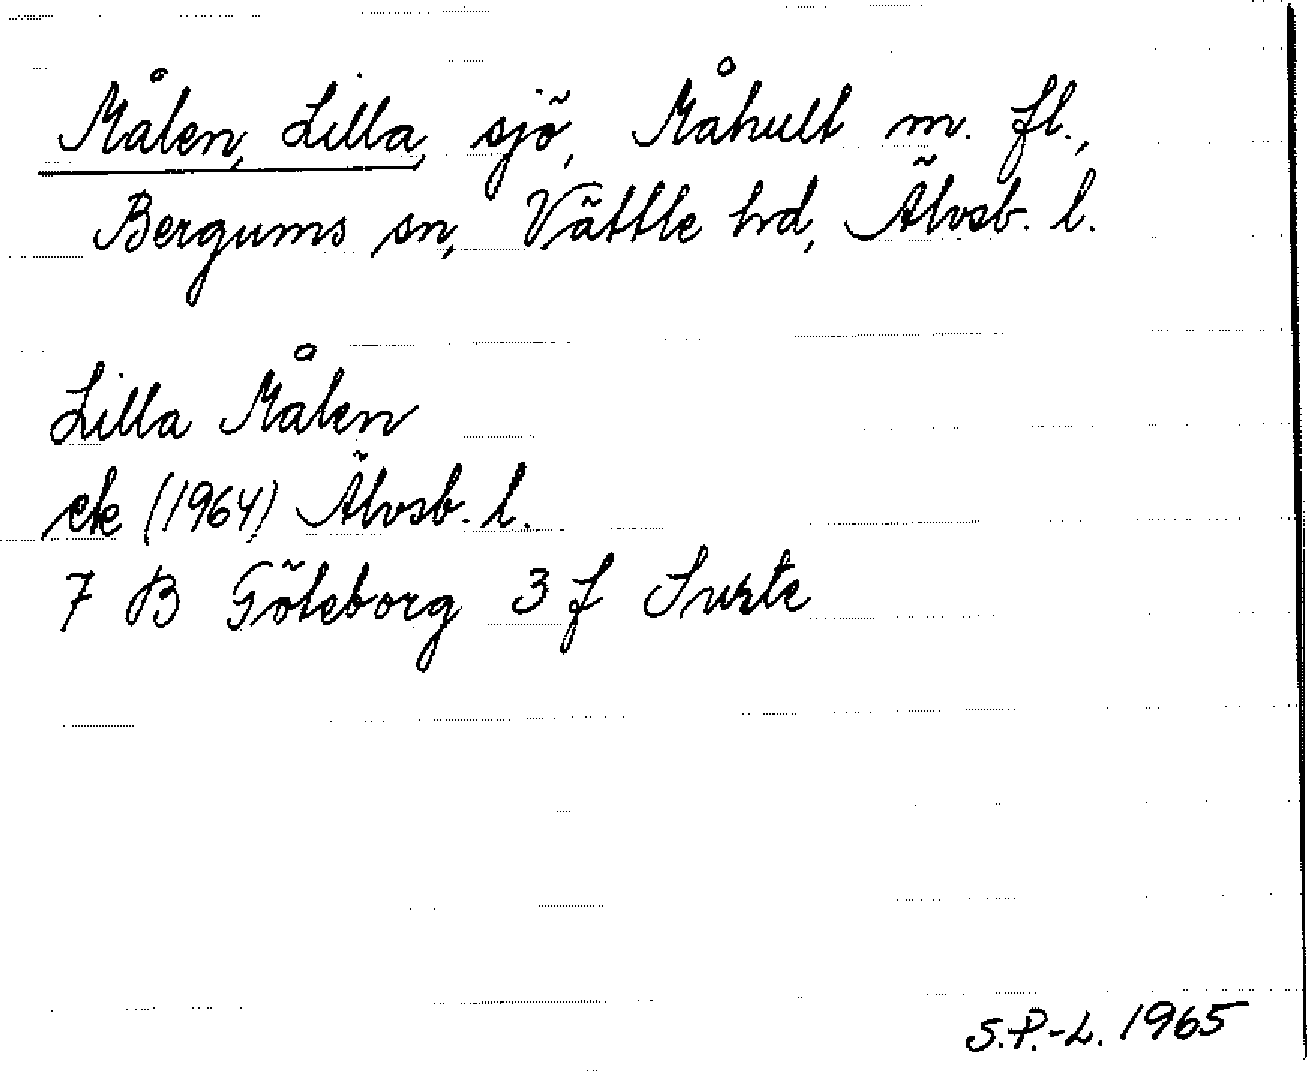 Målen, Lilla, sjö, Måhult m. fl.,
Bergums sn, Vättle hd, Älvsb. l.
Lilla Målen
ek (1964) Älvsb. l.
7 B Göteborg 3 f Surte
S.P.-L. 1965